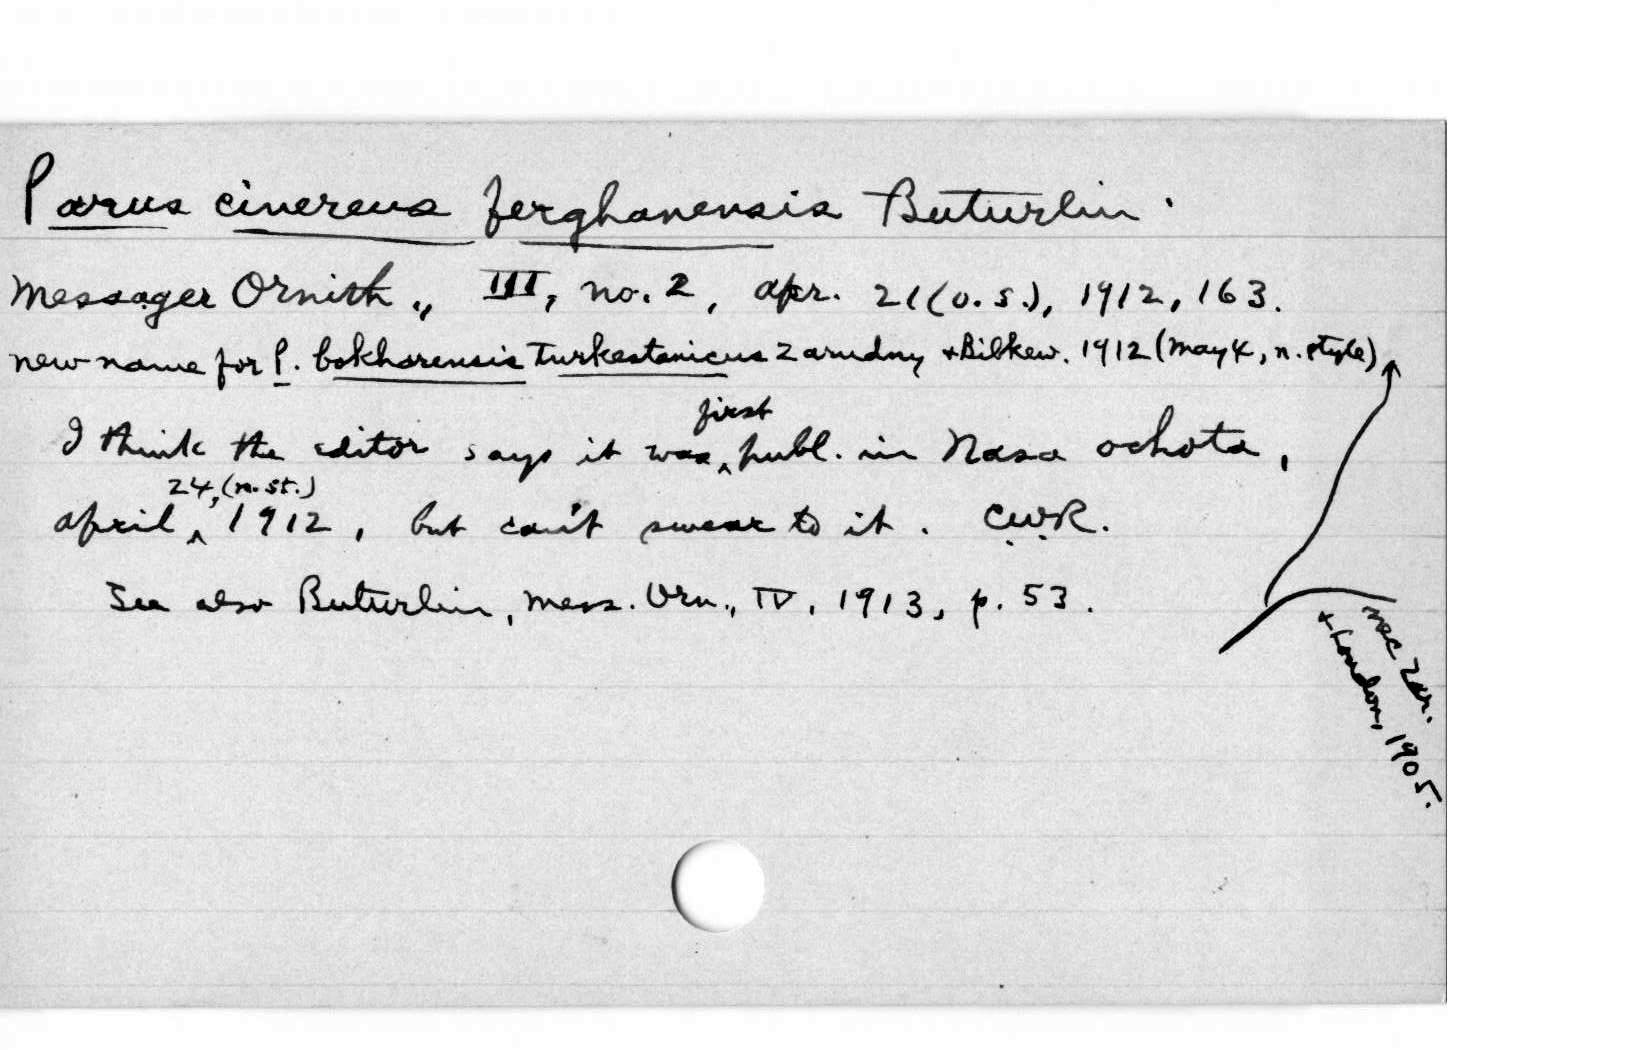 Parus cinereus ferghanensis Buturlin.
Messager Ornith., III, no. 2, apr. 21 (o.s.), 1912, 163.
new name for P. bokharensis turkestanicus Zarudny + Bilkew. 1912 (May 4, n. style)
I think the editor says it was first publ. in Nasa ochota,
april 24, (n. st.) 1912, but can't swear to it. C.W.R.
See also Buturlin, Mess. Orn., IV, 1913, p. 53.
nec Zar.
+ Loudon, 1905.